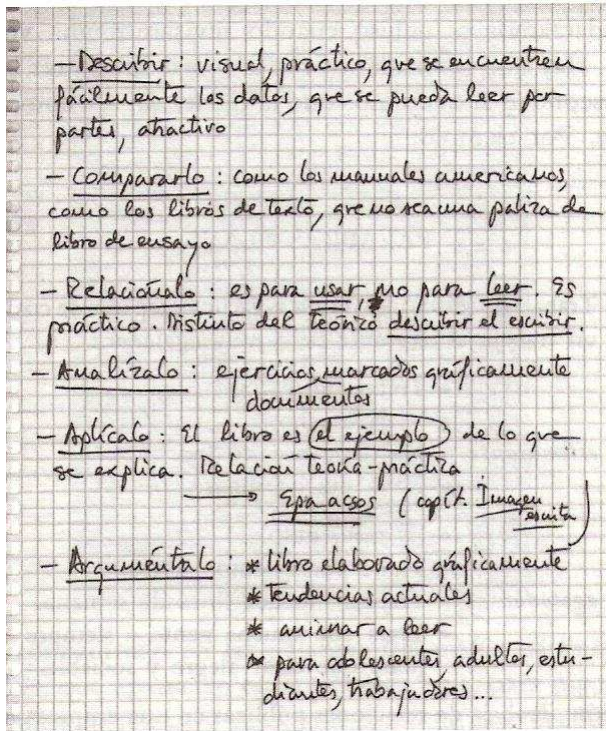 — Describir: visual, práctico, que se encuentren
fácilmente los datos, que se pueda leer por
partes, atractivo
— Compararlo: como los manuales americanos,
como los libros de texto, que no sea una paliza de
libro de ensayo
— Relaciónalo: es para usar, no para leer. Es
práctico. Distinto del teórico describir el escribir.
— Analízalo: ejercicios, marcados gráficamente
documentos
— Aplícalo: El libro es el ejemplo de lo que
se explica. Relación teoría-práctica
→ (capít. Imagen
escrita
— Arguméntalo: * libro elaborado gráficamente
* tendencias actuales
* animar a leer
* para adolescentes, adultos, estu-
diantes, trabajadores...